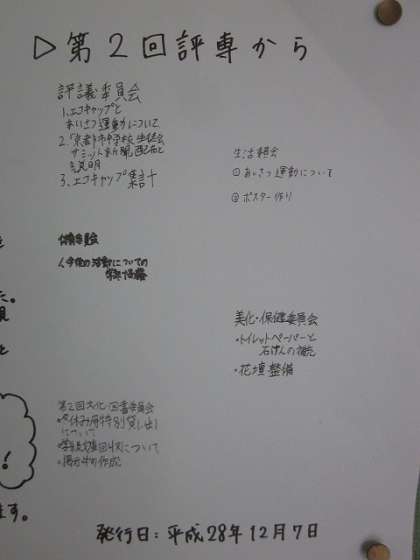 ▷第2回評専から
評議委員会
1.エコキャップと
あいさつ運動について
2.「京都市中学校生徒会
サミット新聞」配布と
説明
3.エコキャップ集計
生活委員会
①あいさつ運動について
②ポスター作り
体育委員会
1,今後の活動についての
美化・保健委員会
・トイレットペーパーと
石けんの補充
・花壇整備
第2回文化・図書委員会
・冬休み前特別貸し出し
について
回収について
の作成
と
た。
見
と
!
ます。
発行日:平成28年12月7日